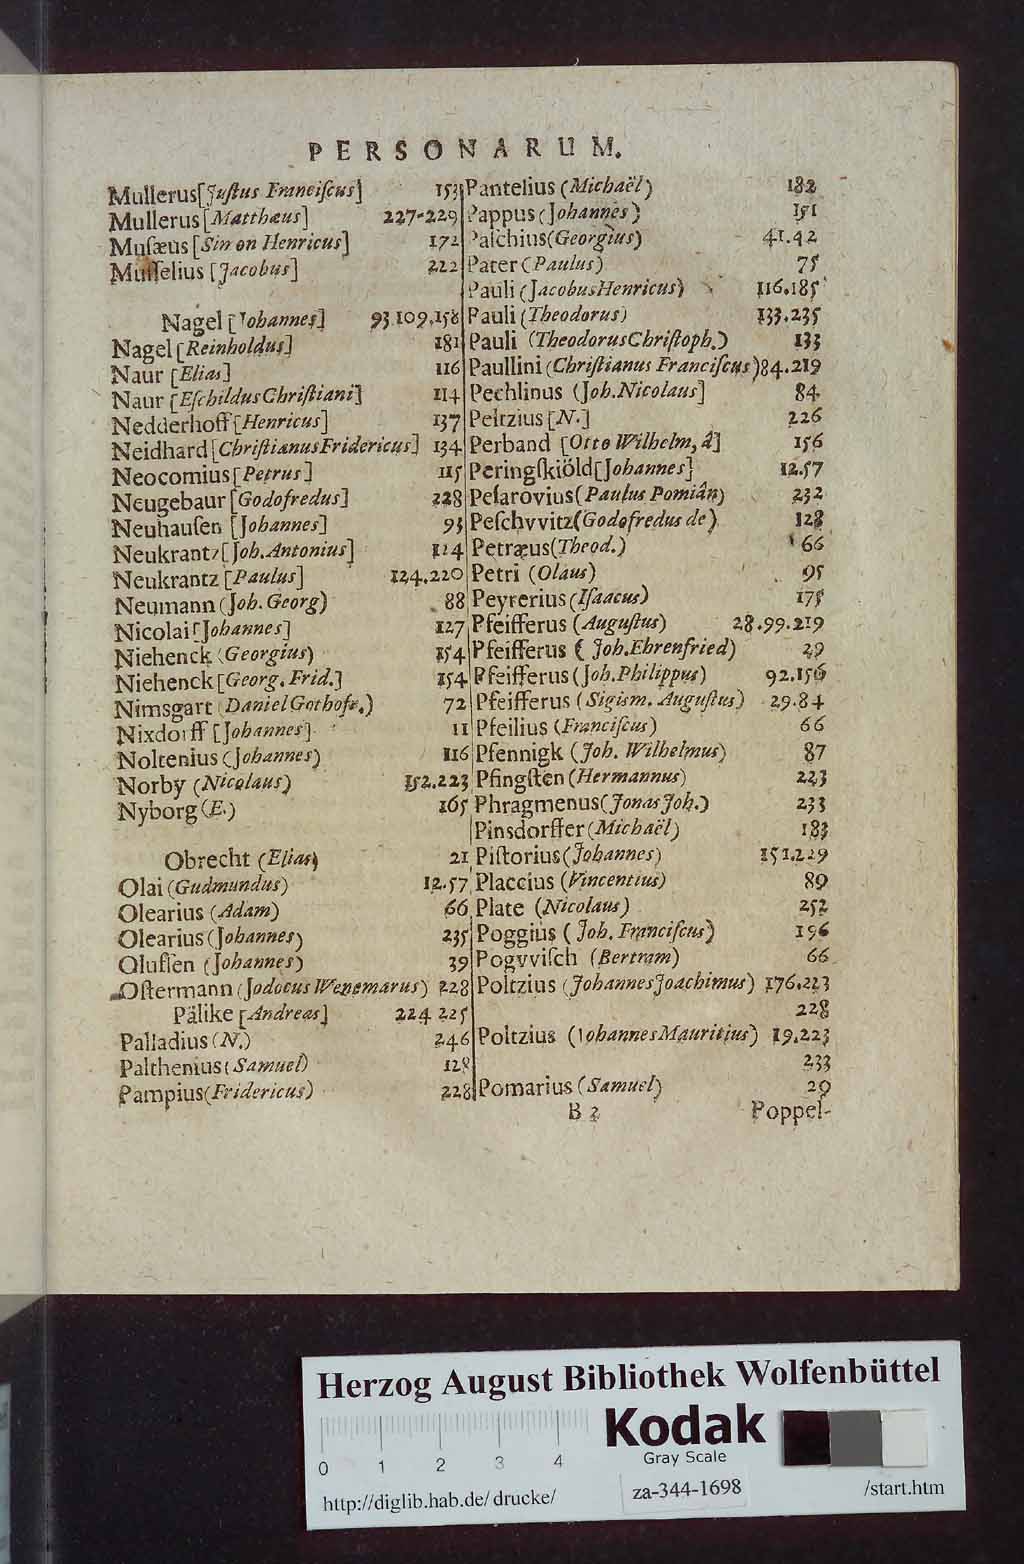 PERSONARUM.
Mullerus [Juſtus Franciſcus] 153
Mullerus [Matthæus] 227-229
Muſæus [Simon Henricus] 172
Muſſelius [Jacobus] 222
Nagel [Johannes] 93.109.158
Nagel [Reinholdus] 181
Naur [Elias] 116
Naur [Eſchildus Chriſtiani] 114
Nedderhoff [Henricus] 137
Neidhard [Chriſtianus Fridericus] 134
Neocomius [Petrus] 115
Neugebaur [Godofredus] 228
Neuhauſen [Johannes] 93
Neukrantz [Joh. Antonius] 124
Neukrantz [Paulus] 124.220
Neumann (Joh. Georg) 88
Nicolai [Johannes] 127
Niehenck (Georgius) 154
Niehenck [Georg. Frid.] 154
Nimsgart (Daniel Gothofr.) 72
Nixdorff [Johannes] 11
Noltenius (Johannes) 116
Norby (Nicolaus) 152.223
Nyborg (E.) 165
Obrecht (Elias) 21
Olai (Gudmundus) 12.57
Olearius (Adam) 66
Olearius (Johannes) 235
Oluffen (Johannes) 39
Oſtermann (Jodocus Wenemarus) 228
Pälike [Andreas] 224 225
Palladius (N.) 246
Palthenius (Samuel) 128
Pampius (Fridericus) 228
Pantelius (Michaël) 182
Pappus (Johannes) 151
Paſchius (Georgius) 41.42
Pater (Paulus) 75
Pauli (Jacobus Henricus) 116.185
Pauli (Theodorus) 133.235
Pauli (Theodorus Chriſtoph.) 133
Paullini (Chriſtianus Franciſcus) 84.219
Pechlinus (Joh. Nicolaus] 84
Peltzius [N.] 226
Perband [Otto Wilhelm, à] 156
Peringſkiöld [Johannes] 12.57
Peſarovius (Paulus Pomiân) 232
Peſchvvitz (Godofredus de) 128
Petræus (Theod.) 66
Petri (Olaus) 95
Peyrerius (Iſaacus) 175
Pfeifferus (Auguſtus) 28.99.219
Pfeifferus (Joh. Ehrenfried) 29
Pfeifferus (Joh. Philippus) 92.156
Pfeifferus (Sigism. Auguſtus) 29.84
Pfeilius (Franciſcus) 66
Pfennigk (Joh. Wilhelmus) 87
Pfingſten (Hermannus) 223
Phragmenus (Jonas Joh.) 233
Pinsdorffer (Michaël) 183
Piſtorius (Johannes) 151.229
Placcius (Vincentius) 89
Plate (Nicolaus) 252
Poggius (Joh. Franciſcus) 196
Pogvviſch (Bertram) 66
Poltzius (Johannes Joachimus) 176.223
228
Poltzius (Johannes Mauritius) 19.223
233
Pomarius (Samuel) 29
B 2 Poppel-
Herzog August Bibliothek Wolfenbüttel
Kodak
Gray Scale
0 1 2 3 4
http://diglib.hab.de/drucke/ za-344-1698 /start.htm